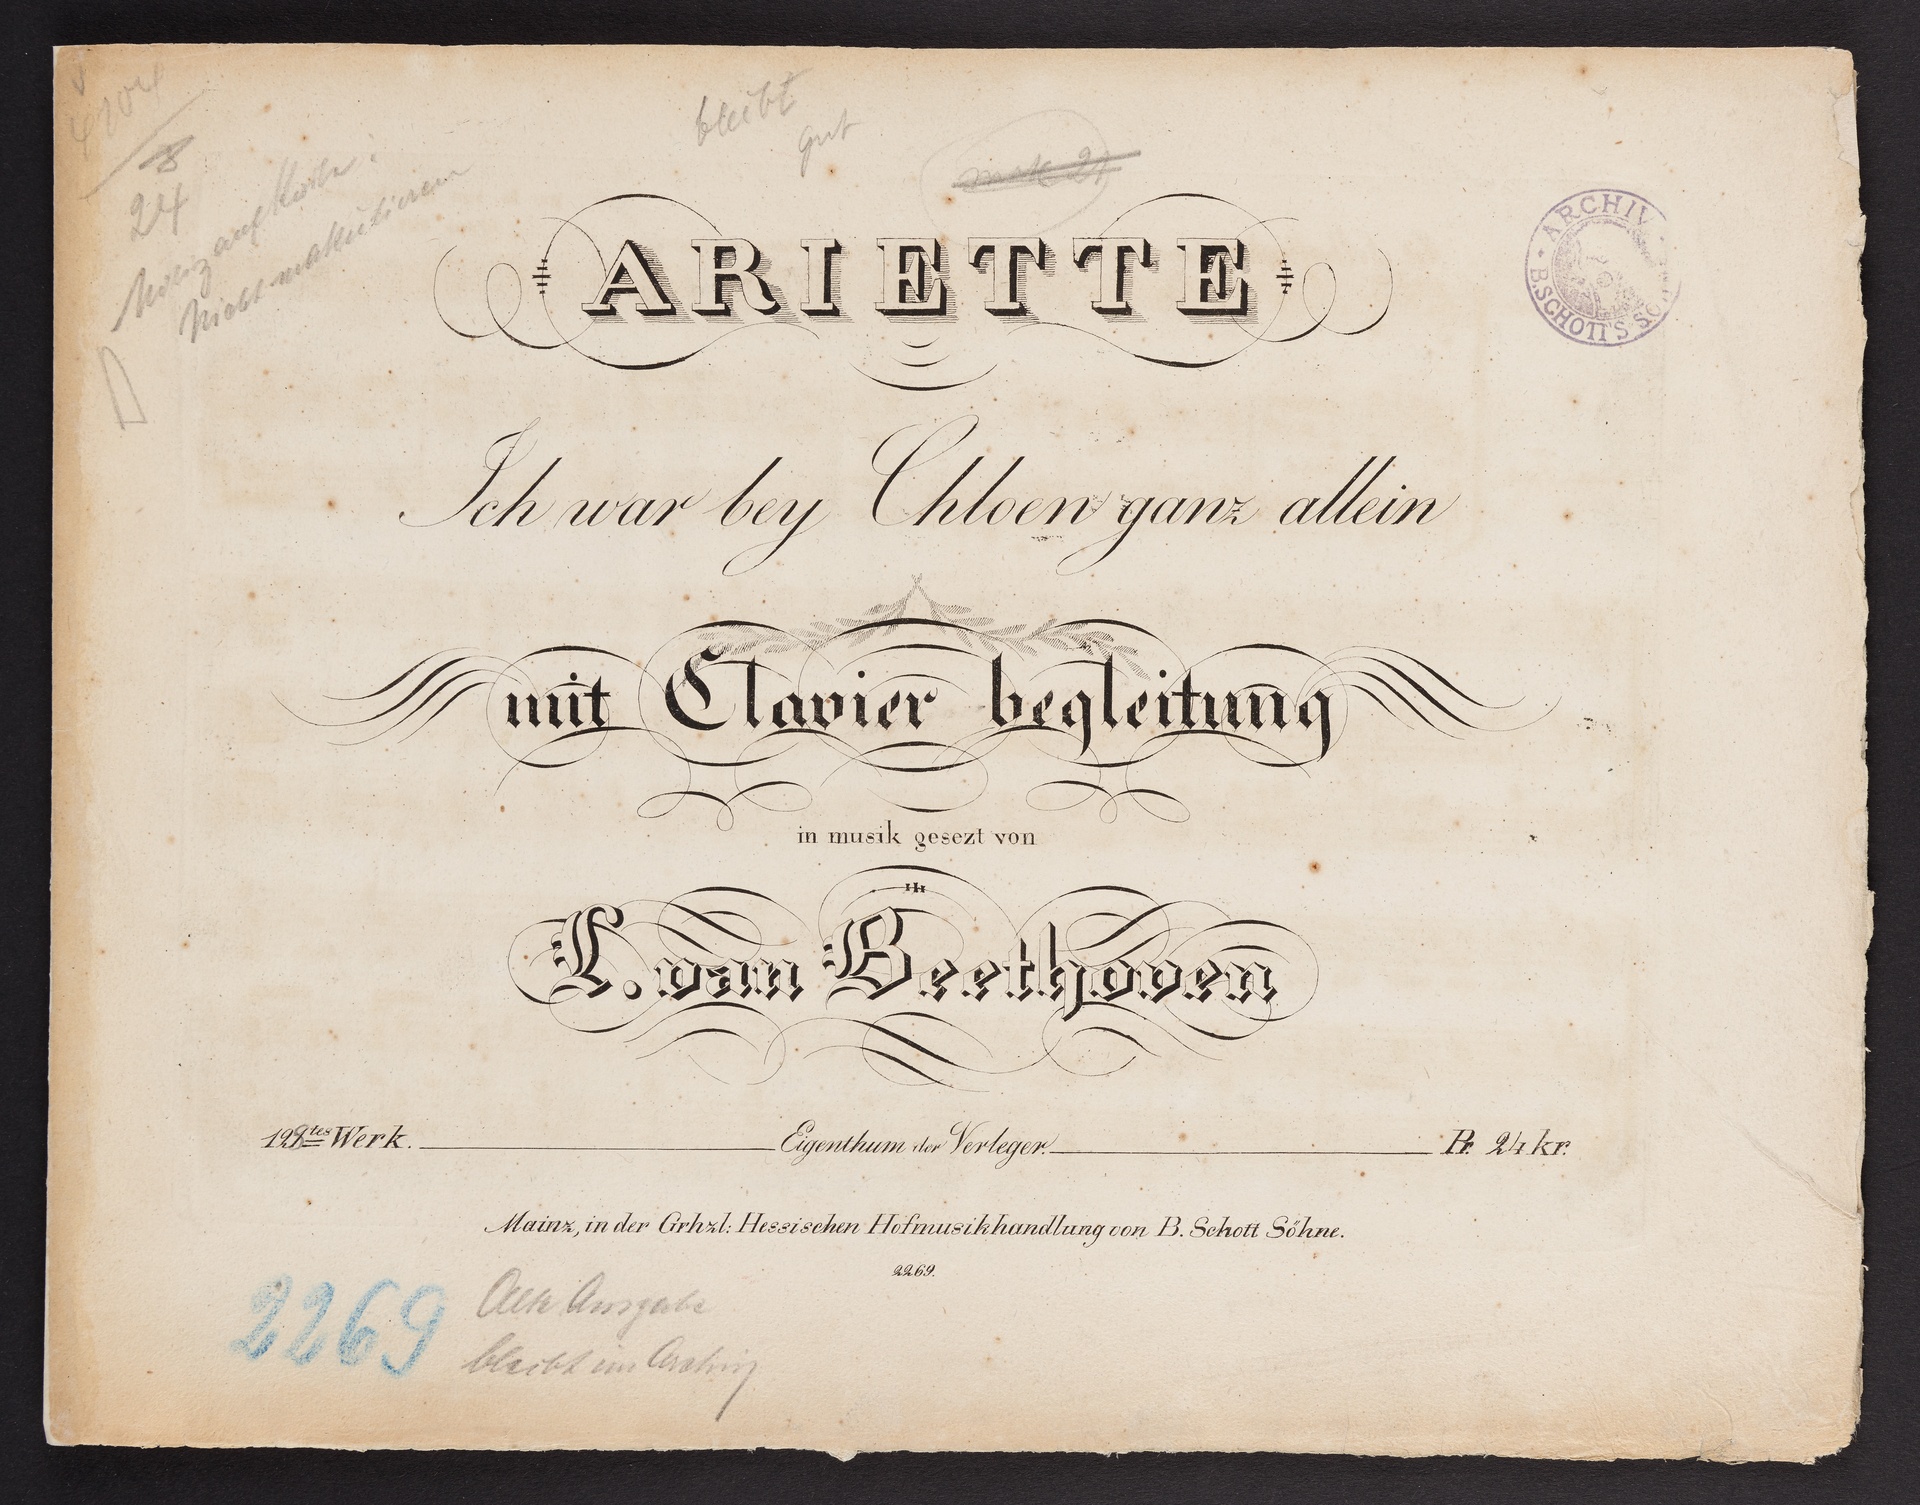 24
bleibt
gut
nicht makulieren
ARCHIV
B. SCHOTT'S SÖ
ARIETTE
Ich war bey Chloen ganz allein
mit Clavier begleitung
in musik gesezt von
L. van Beethoven
128tes Werk. Eigenthum der Verleger. Pr. 24 kr.
Mainz, in der Grhzl: Hessischen Hofmusikhandlung von B. Schott Söhne.
2269.
2269
Alte Ausgabe
bleibt im Archiv